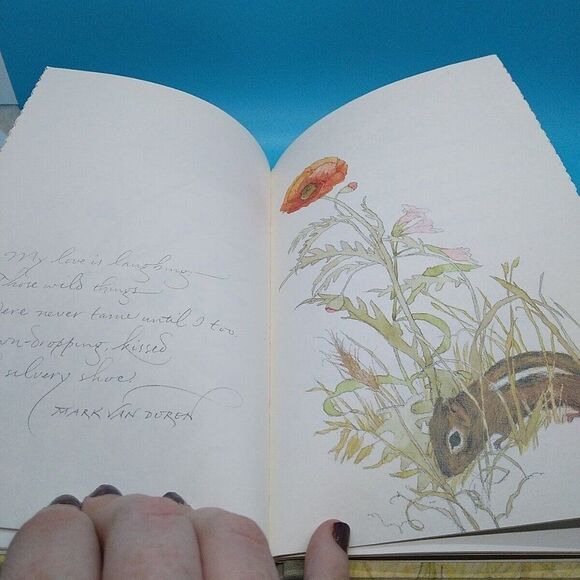 My love is laughing
Those wild things
were never tame until I too,
-dropping, kissed
silvery shoe.
MARK VAN DOREN